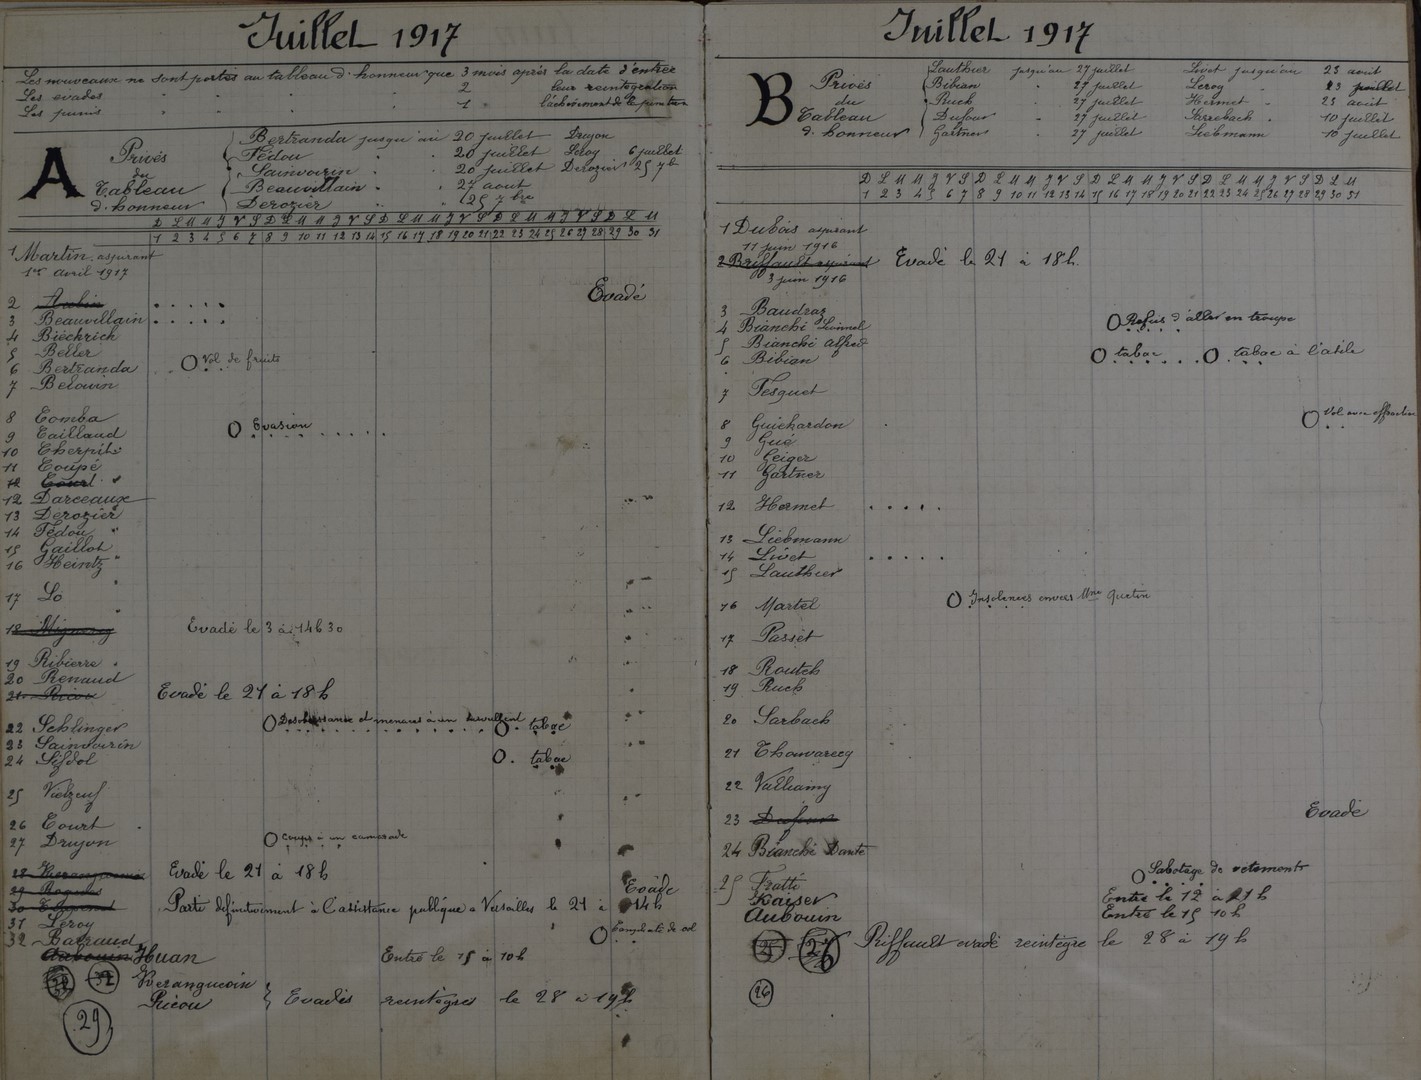 Juillet 1917
Les nouveaux ne sont portés au tableau d'honneur que 3 mois après la date d'entrée
Les évadés " " " " 2 leur réintégration
Les punis " " " " 1 l'achèvement de la punition
A Privés du Tableau d'honneur
Bertranda jusqu'au 20 juillet Drujon
Fédou " 20 juillet Leroy 6 juillet
Sainvoirin " 20 juillet Derozier 25 7b
Beauvillain " 27 aout
Derozier " 25 7bre
D L M M J V S D L M M J V S D L M M J V S D L M M J V S D L M
1 2 3 4 5 6 7 8 9 10 11 12 13 14 15 16 17 18 19 20 21 22 23 24 25 26 27 28 29 30 31
1 Martin, aspirant
1er avril 1917
2 Evadé
3 Beauvillain
4 Bieckrich
5 Beller
6 Bertranda O Vol de fruits
7 Belouin
8 Comba
9 Caillaud O Evasion
10 Cherpit
11 Coupé
12 Court
12 Darceaux
13 Derozier
14 Fédou
15 Gaillot
16 Heintz
17 Lo
18 Evadé le 3 à 14h30
19 Ribierre
20 Renaud
21 Ricou Evadé le 21 à 18h
22 Schlinger O Désobéissance et menaces à un surveillant O tabac
23 Sainvoirin
24 O tabac
25 Vielzeuf
26 Court
27 Drujon O Coups à un camarade
28 Evadé le 21 à 18h
29 Evade
30 Parti définitivement à l'assistance publique à Versailles le 21 à 14h
31 Leroy
32 O Complicité de vol
Aubouin Huan Entré le 15 à 10h
32
Ricou } Evadés réintégrés le 28 à 19h
29
Juillet 1917
B Privés du Tableau d'honneur
Lauthier jusqu'au 27 juillet Livet jusqu'au 23 août
Bibian " 27 juillet Leroy 23 juillet
Ruch " 27 juillet Hermet " 23 août
Dufour " 27 juillet 10 juillet
Gartner " 27 juillet Liebmann 10 juillet
D L M M J V S D L M M J V S D L M M J V S D L M M J V S D L M
1 2 3 4 5 6 7 8 9 10 11 12 13 14 15 16 17 18 19 20 21 22 23 24 25 26 27 28 29 30 31
1 Dubois aspirant
11 juin 1916
2 Riffault aspirant Evadé le 21 à 18h.
3 juin 1916
3 Baudraz
4 Bianchi Lionnel O Refus d'aller en troupe
5 Bianchi Alfred
6 Bibian O tabac O tabac à l'atelie
7 Fesquet
8 Guichardon O Vol avec effraction
9 Gué
10 Geiger
11 Gartner
12 Hermet
13 Liebmann
14 Livet
15 Lauthier
16 Martel O Insolences envers Mme Quetin
17 Passet
18 Routch
19 Ruch
20 Sarbach
21 Thouvarecq
22 Valliamy
23 Dufour Evadé
24 Bianchi Dante
25 Fratti O Sabotage de vêtements
Kayser Entré le 12 à 21h
Aubouin Entré le 15 10h
25 26 Riffault evadé reintègre le 28 à 19h
26